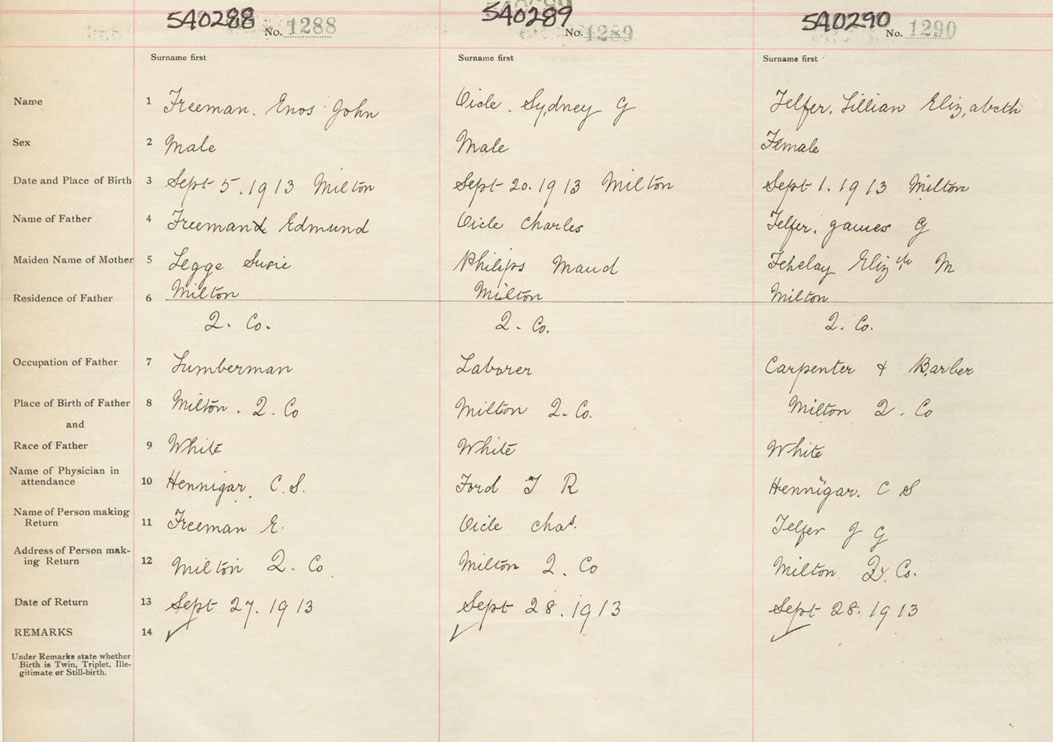 540288 No. 1288 540289 No. 1289 540290 No. 1290
Surname first Surname first Surname first
Name 1 Freeman. Enos John Oicle. Sydney G Telfer, Lillian Elizabeth
Sex 2 Male Male Female
Date and Place of Birth 3 Sept 5. 1913 Milton Sept 20. 1913 Milton Sept 1. 1913 Milton
Name of Father 4 Freeman Edmund Oicle Charles Telfer, James G
Maiden Name of Mother 5 Legge Susie Philips Maud Eliz th M
Residence of Father 6 Milton Milton Milton
Q. Co. Q. Co. Q. Co.
Occupation of Father 7 Lumberman Laborer Carpenter & Barber
Place of Birth of Father 8 Milton. Q. Co Milton Q. Co. Milton Q. Co
and
Race of Father 9 White White White
Name of Physician in
attendance 10 Hennigar. C. S. Ford T R Hennigar. C S
Name of Person making
Return 11 Freeman E. Oicle Chas. Telfer J G
Address of Person mak-
ing Return 12 Milton Q. Co Milton Q. Co Milton Q. Co.
Date of Return 13 Sept 27. 1913 Sept 28. 1913 Sept 28. 1913
REMARKS 14
Under Remarks state whether
Birth is Twin, Triplet, Ille-
gitimate or Still-birth.